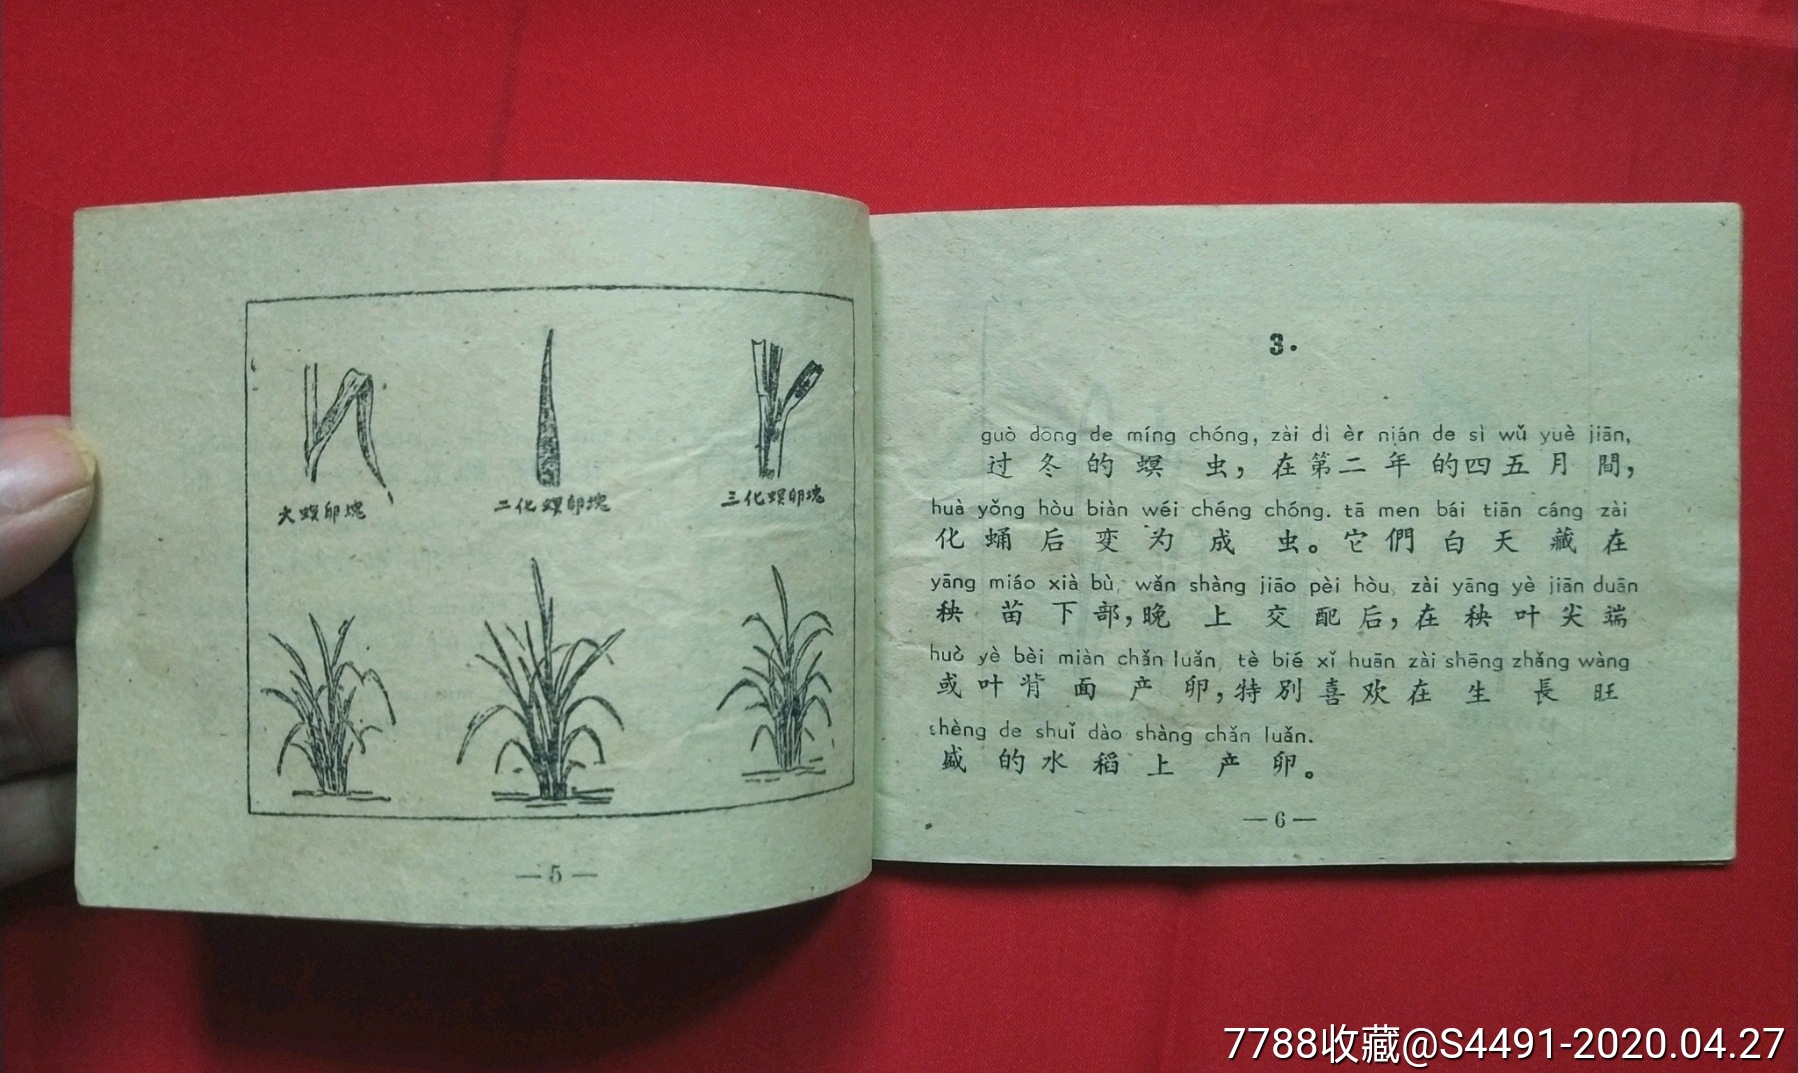 大螟卵塊
二化螟卵塊
三化螟卵塊
—5—
3.
guò dōng de míng chóng, zài dì èr nián de sì wǔ yuè jiān,
过冬的螟虫，在第二年的四五月間，
huà yǒng hòu biàn wéi chéng chóng. tā men bái tiān cáng zài
化蛹后变为成虫。它們白天藏在
yāng miáo xià bù, wǎn shàng jiāo pèi hòu, zài yāng yè jiān duān
秧苗下部，晚上交配后，在秧叶尖端
huò yè bèi miàn chǎn luǎn, tè bié xǐ huān zài shēng zhǎng wàng
或叶背面产卵，特别喜欢在生長旺
shèng de shuǐ dào shàng chǎn luǎn.
盛的水稻上产卵。
—6—
7788收藏@S4491-2020.04.27